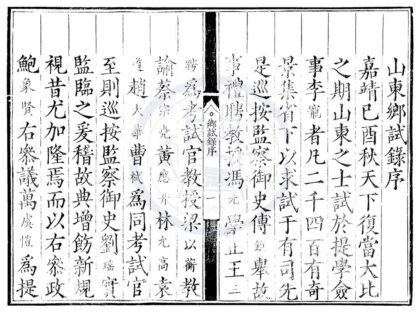 山東鄉試録序
嘉靖己酉秋天下復當大比
之期山東之士試於提學僉
事李寵者凡二千四百有奇
景集省下以求試于有司先
是巡按監察御史傅 舉故
事禮聘教授馮元學正王三
鄉試録序
聘爲考試官教授梁以蘅教
諭蔡崇堯黃應亨林元高袁
逵趙大華曹棫爲同考試官
至則巡按監察御史劉瑶實
監臨之爰稽故典增飭新規
視昔尤加隆焉而以右叅政
鮑象賢右叅議萬虞愷爲提